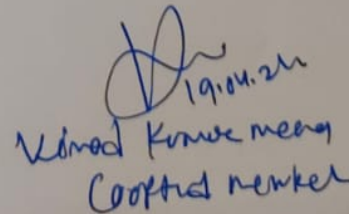 19.04.24
Vinod Kumar meena
Coopted member